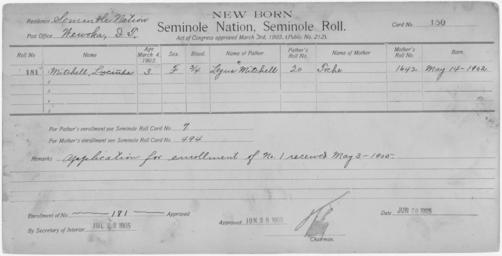 NEW BORN.
Residence Seminole Nation
Seminole Nation, Seminole Roll.
Card No. 150
Post Office Wewoka, I.T.
Act of Congress approved March 3rd, 1905, (Public No. 212).
Roll No. Name Age March 4, 1905. Sex. Blood. Name of Father Father's Roll No. Name of Mother Mother's Roll No. Born.
181 Mitchell, 3 F 3/4 Mitchell 20 1642 May 14-1902
2
3
4
For Father's enrollment see Seminole Roll Card No. 7
For Mother's enrollment see Seminole Roll Card No. 494
Remarks Application for enrollment of No. 1 received May 3-1905.
Enrollment of No. 181 Approved
By Secretary of Interior. 1905
Approved JUN 1905
Chairman.
Date JUN 1905